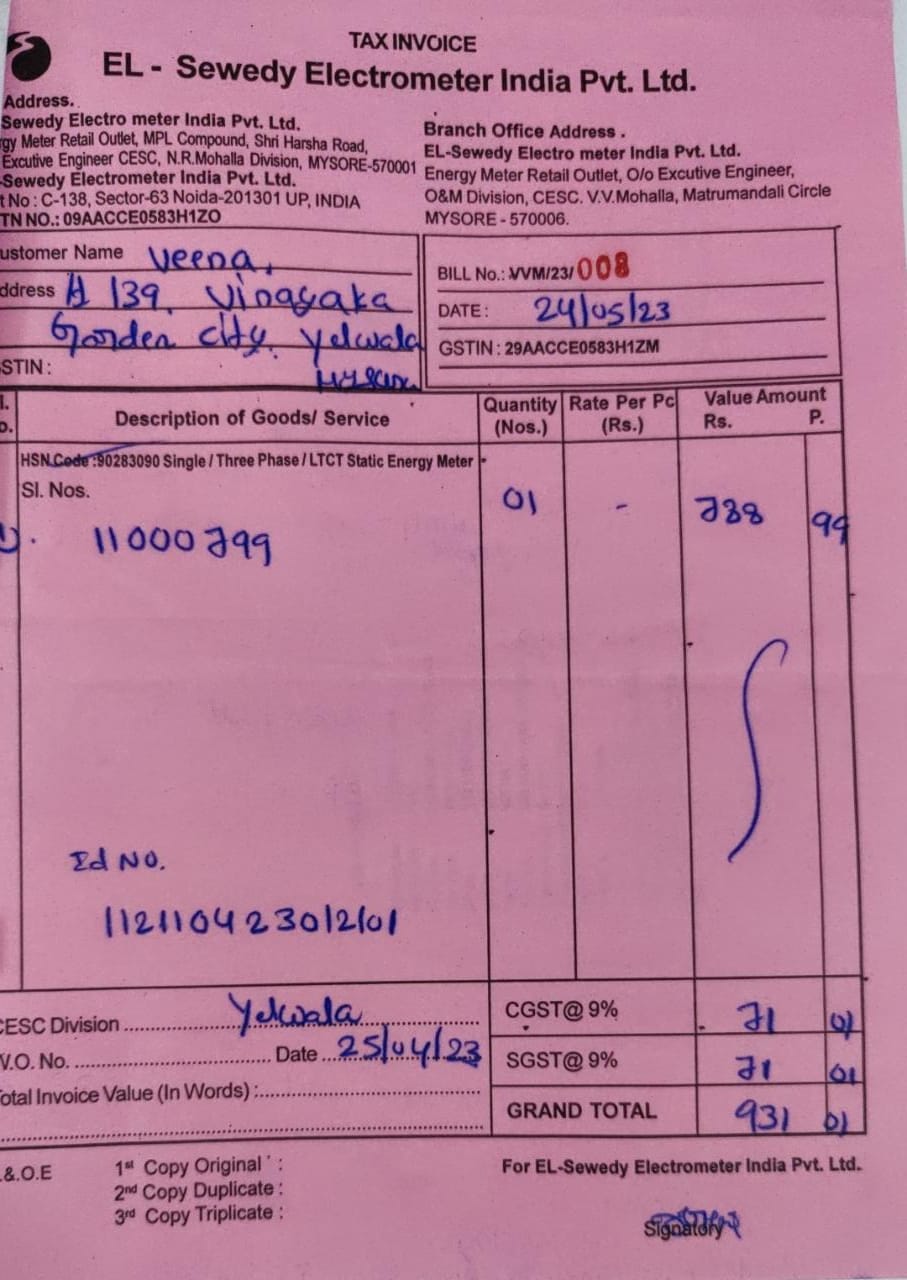 TAX INVOICE
EL - Sewedy Electrometer India Pvt. Ltd.
Address.
Sewedy Electro meter India Pvt. Ltd.
gy Meter Retail Outlet, MPL Compound, Shri Harsha Road,
Excutive Engineer CESC, N.R.Mohalla Division, MYSORE-570001
-Sewedy Electrometer India Pvt. Ltd.
t No : C-138, Sector-63 Noida-201301 UP, INDIA
TN NO.: 09AACCE0583H1ZO
Branch Office Address .
EL-Sewedy Electro meter India Pvt. Ltd.
Energy Meter Retail Outlet, O/o Excutive Engineer,
O&M Division, CESC. V.V.Mohalla, Matrumandali Circle
MYSORE - 570006.
ustomer Name Veena,
ddress # 139, Vinayaka
Gorden city. Yelwala
STIN : Mysuru
BILL No.: VVM/23/ 008
DATE : 24/05/23
GSTIN : 29AACCE0583H1ZM
l. Description of Goods/ Service Quantity Rate Per Pc Value Amount
o. (Nos.) (Rs.) Rs. P.
HSN Code :90283090 Single / Three Phase / LTCT Static Energy Meter
Sl. Nos. 01 - 788 99
1). 11000799
Id No.
112110423012101
CESC Division Yelwala CGST@ 9% 71 01
W.O. No. Date 25/04/23 SGST@ 9% 71 01
otal Invoice Value (In Words) : GRAND TOTAL 931 01
.&.O.E 1st Copy Original : For EL-Sewedy Electrometer India Pvt. Ltd.
2nd Copy Duplicate :
3rd Copy Triplicate :
Signatory